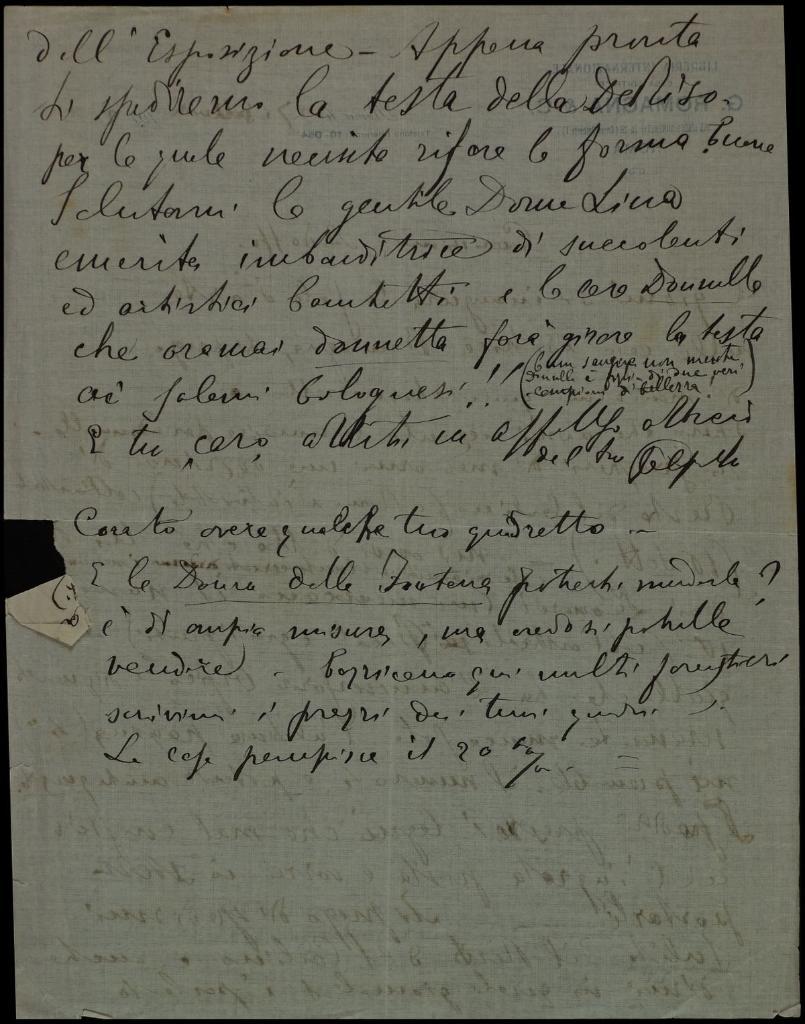 dell'Esposizione - Appena pronta
ti spediremo la testa della DeRiso -
per la quale necessita rifare la forma buona
Salutami la gentile Donna Lina
emerita imbanditrice di succolenti
ed artistici banchetti e la cara Donnella
che oramai donnetta farà girare la testa
ai felsinei bolognesi!! (buon sangue non mente
Donnella è figlia di due veri
campioni di bellezza)
E tu, caro, abbiti un affettuoso
del tuo
Cerato avere qualche tuo quadretto -
E la Donna della Fontana potresti mandarla?
è di ampia misura, ma credo si potrebbe
vendere - Capiscono qui molti forestieri
scrivimi i prezzi dei tuoi quadri
La casa percepisce il 20 %